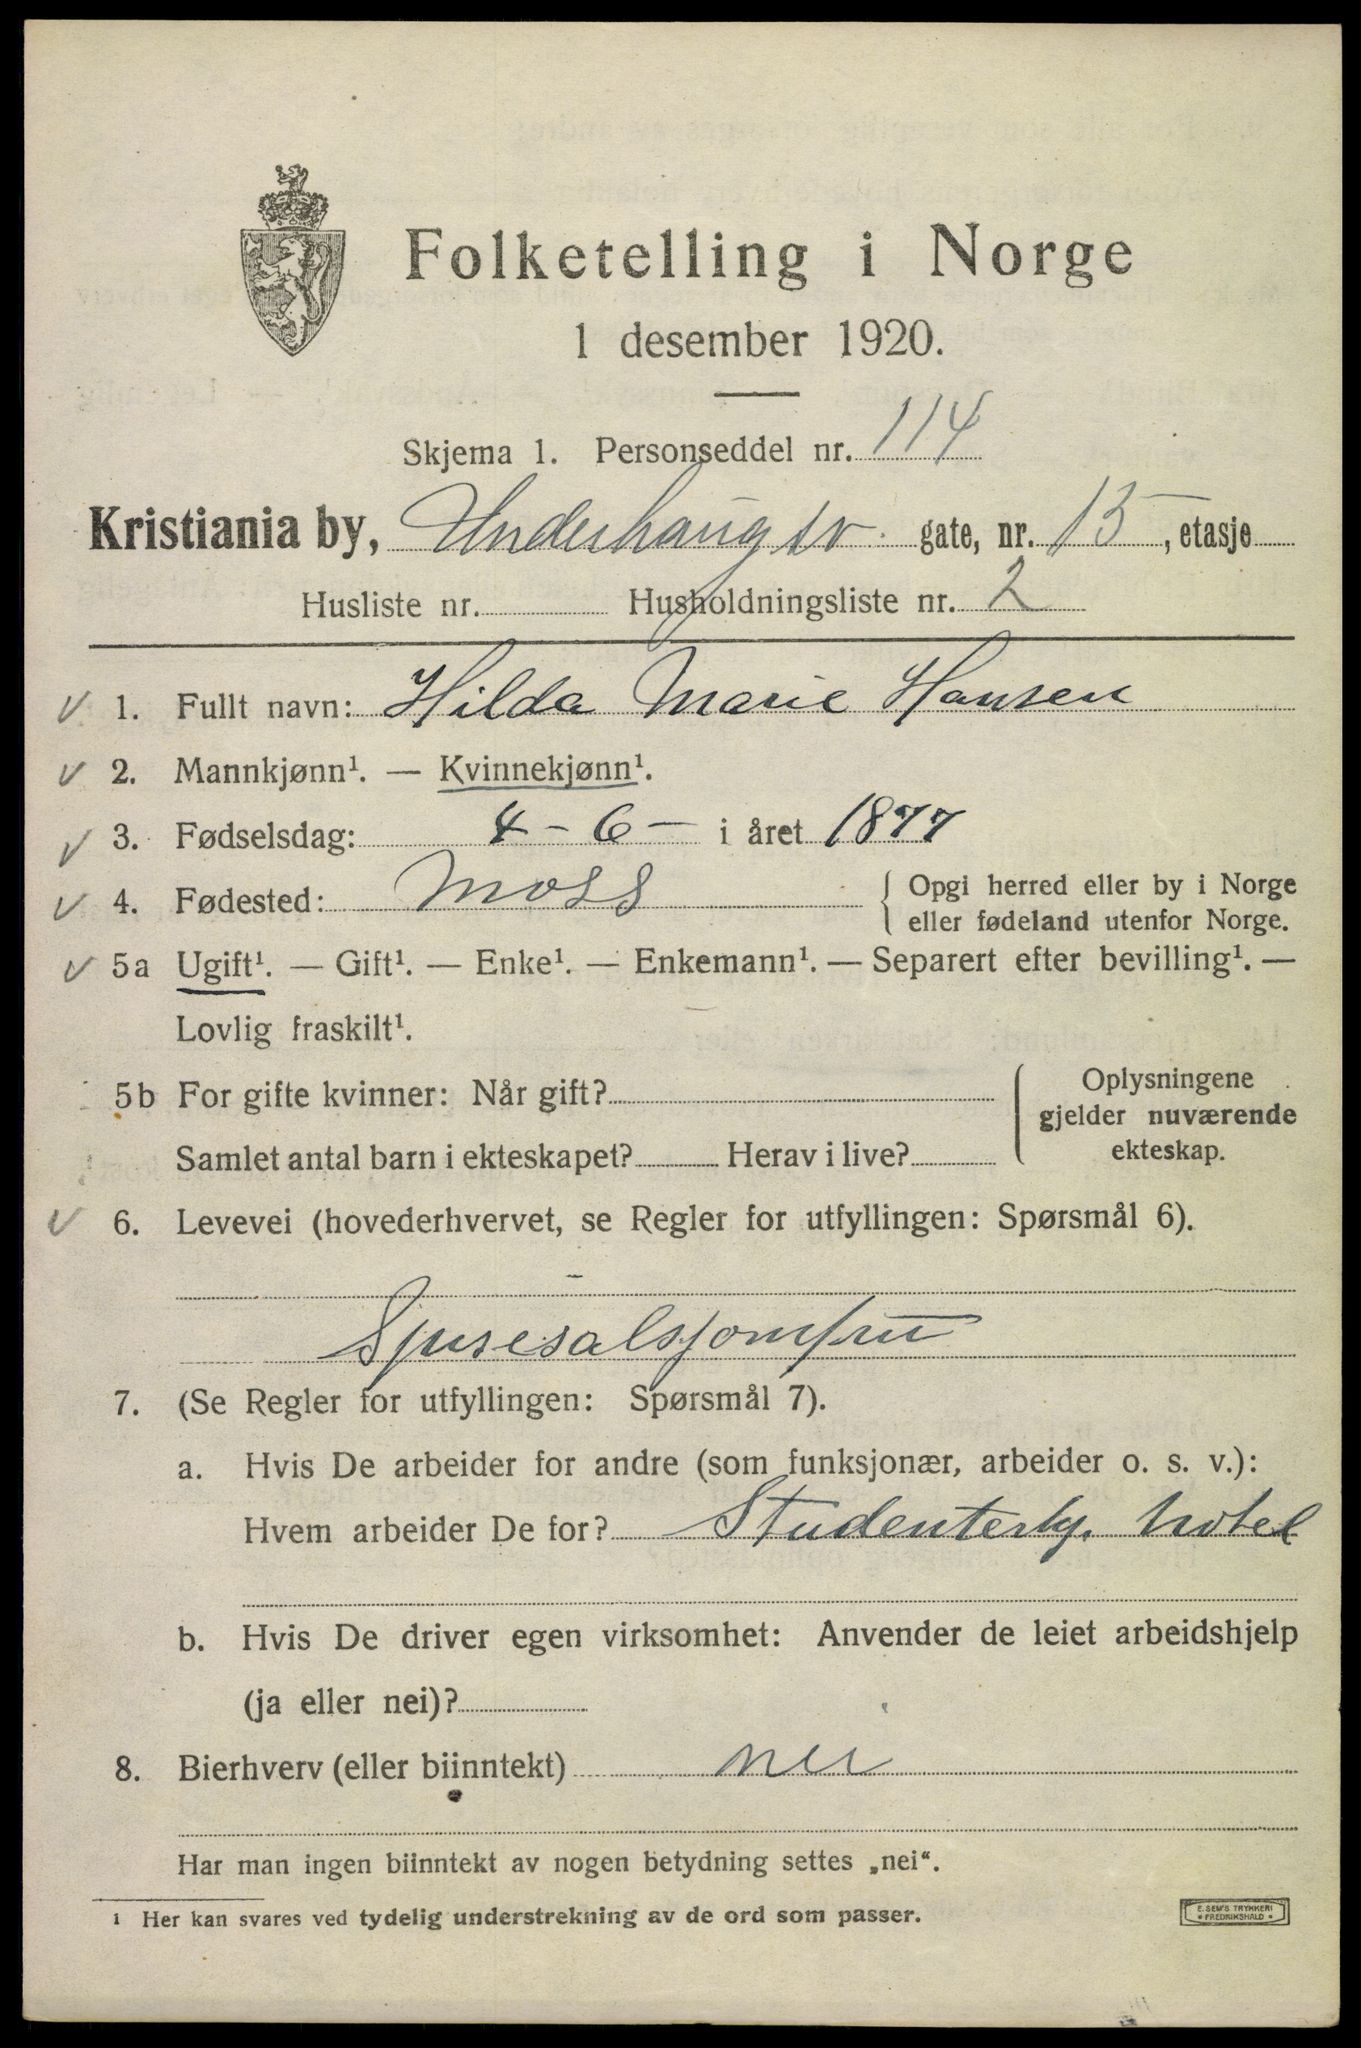 Folketelling i Norge
1 desember 1920.
Skjema 1. Personseddel nr. 114
Kristiania by, Underhaugsv. gate, nr. 15, etasje
Husliste nr. Husholdningsliste nr. 2
1. Fullt navn: Hilda Marie Hansen
2. Mannkjønn¹. — Kvinnekjønn¹.
3. Fødselsdag: 4 - 6 - i året 1877
4. Fødested: Moss { Opgi herred eller by i Norge
eller fødeland utenfor Norge.
5a Ugift¹. — Gift¹. — Enke¹. — Enkemann¹. — Separert efter bevilling¹. —
Lovlig fraskilt¹.
5b For gifte kvinner: Når gift?
Samlet antal barn i ekteskapet? Herav i live?
Oplysningene
gjelder nuværende
ekteskap.
6. Levevei (hovederhvervet, se Regler for utfyllingen: Spørsmål 6).
Spisesalsjomfru
7. (Se Regler for utfyllingen: Spørsmål 7).
a. Hvis De arbeider for andre (som funksjonær, arbeider o. s. v.):
Hvem arbeider De for? Studenterhj. hotel
b. Hvis De driver egen virksomhet: Anvender de leiet arbeidshjelp
(ja eller nei)?
8. Bierhverv (eller biinntekt) nei
Har man ingen biinntekt av nogen betydning settes „nei“.
¹ Her kan svares ved tydelig understrekning av de ord som passer.
E. SEM'S TRYKKERI
• FREDRIKSHALD •